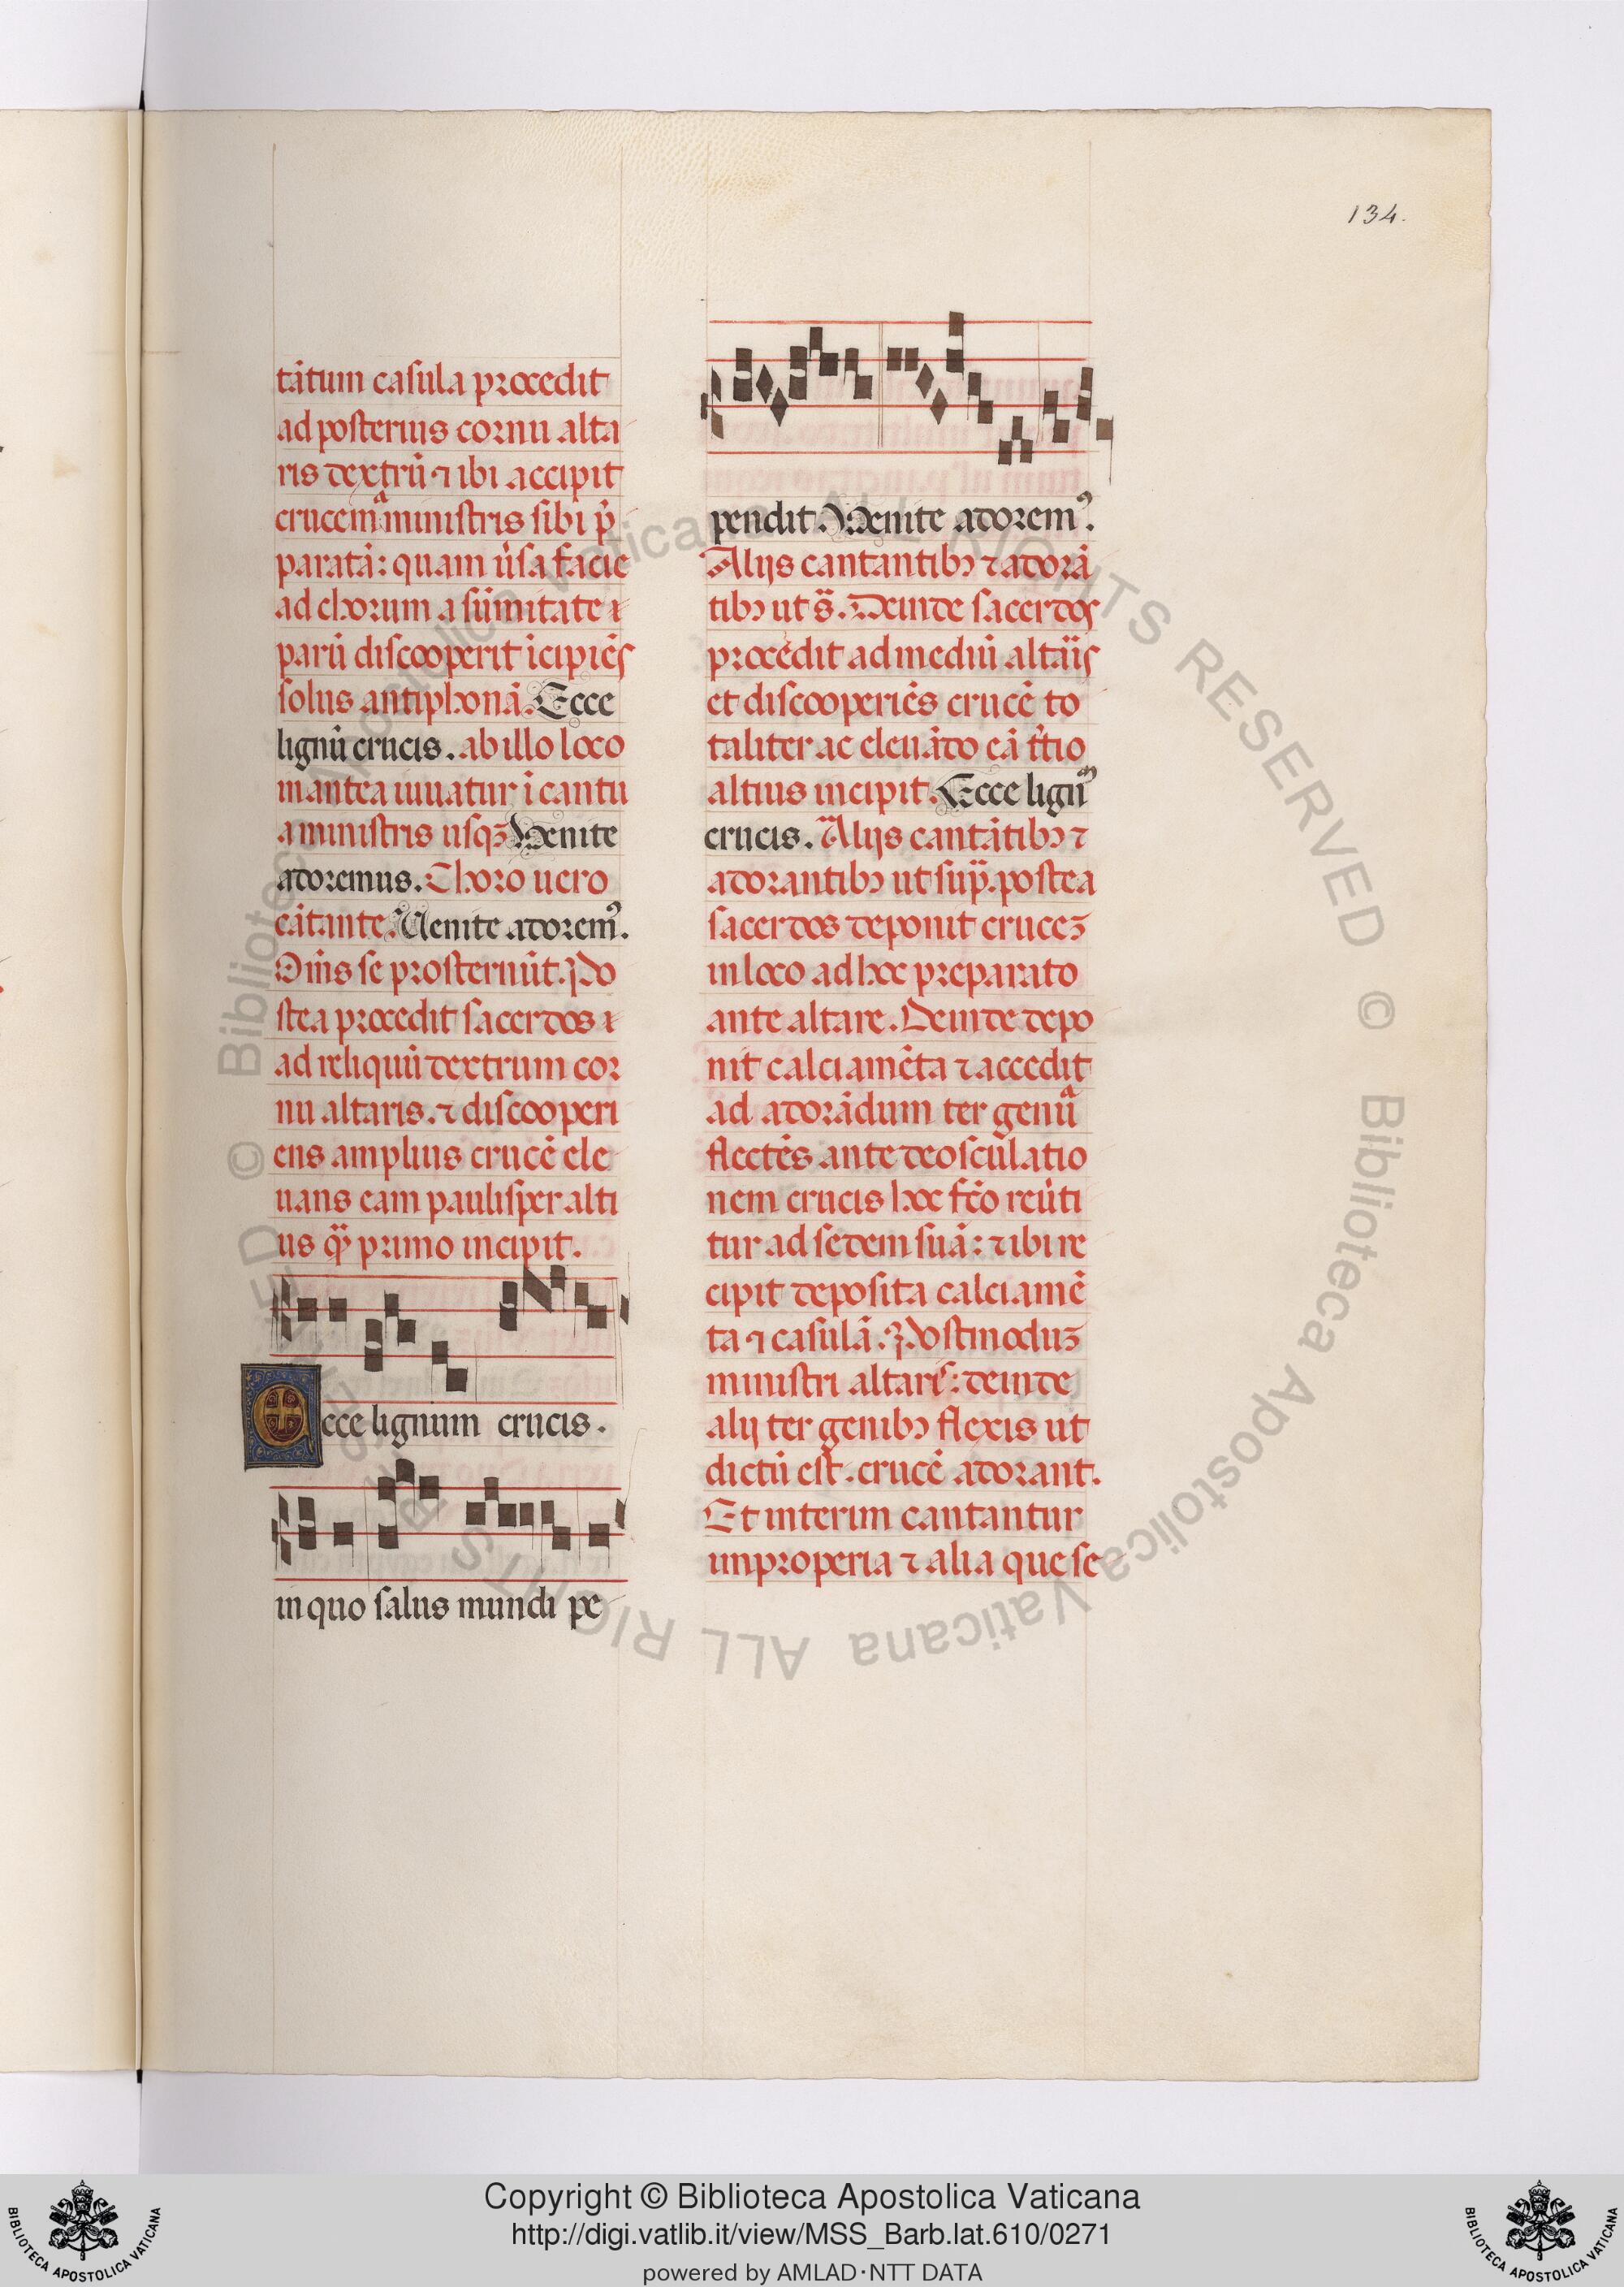 134.
tātum casula procedit
ad posterius cornu alta
ris dextrū ⁊ ibi accipit
crucem a ministris sibi p̄
paratā: quam ūsa facie
ad chorum a sūmitate
parū discooperit īcipiēs
solus antiphonā. Ecce
lignū crucis. ab illo loco
in antea iuuatur ī cantu
a ministris usqꝫ Venite
adoremus. Choro uero
cātante. Uenite adoremꝰ.
Om̄s se prosternūt. Po
stea procedit sacerdos
ad reliquū dextrum cor
nu altaris. ⁊ discooperi
ens amplius crucē ele
uans eam paulisper alti
us qͣꝫ primo incipit.
Ecce lignum crucis.
in quo salus mundi pe
pendit. Venite adoremꝰ.
Alijs cantantibꝫ ⁊ adorā
tibꝫ ut s̄. Deinde sacerdos
procedit ad mediū altaris
et discooperiēs crucē to
taliter ac eleuādo eā t̄tio
altius incipit. Ecce lignū
crucis. Alijs cantātibꝫ ⁊
adorantibꝫ ut sup̄. postea
sacerdos deponit cruceꝫ
in loco ad hoc preparato
ante altare. Deinde depo
nit calciamēta ⁊ accedit
ad adorādum ter genua
flectēs ante deosculatio
nem crucis hoc fc̄o reūti
tur ad sedem suā: ⁊ ibi re
cipit deposita calciamē
ta ⁊ casulā. Postmoduꝫ
ministri altaris: deinde
alij ter genibꝫ flexis ut
dictū est. crucē adorant.
Et interim cantantur
improperia ⁊ alia que se
© Biblioteca Apostolica Vaticana ALL RIGHTS RESERVED © Biblioteca Apostolica Vaticana ALL RIGHTS RESERVED
Copyright © Biblioteca Apostolica Vaticana
http://digi.vatlib.it/view/MSS_Barb.lat.610/0271
powered by AMLAD·NTT DATA
BIBLIOTECA APOSTOLICA VATICANA
BIBLIOTECA APOSTOLICA VATICANA